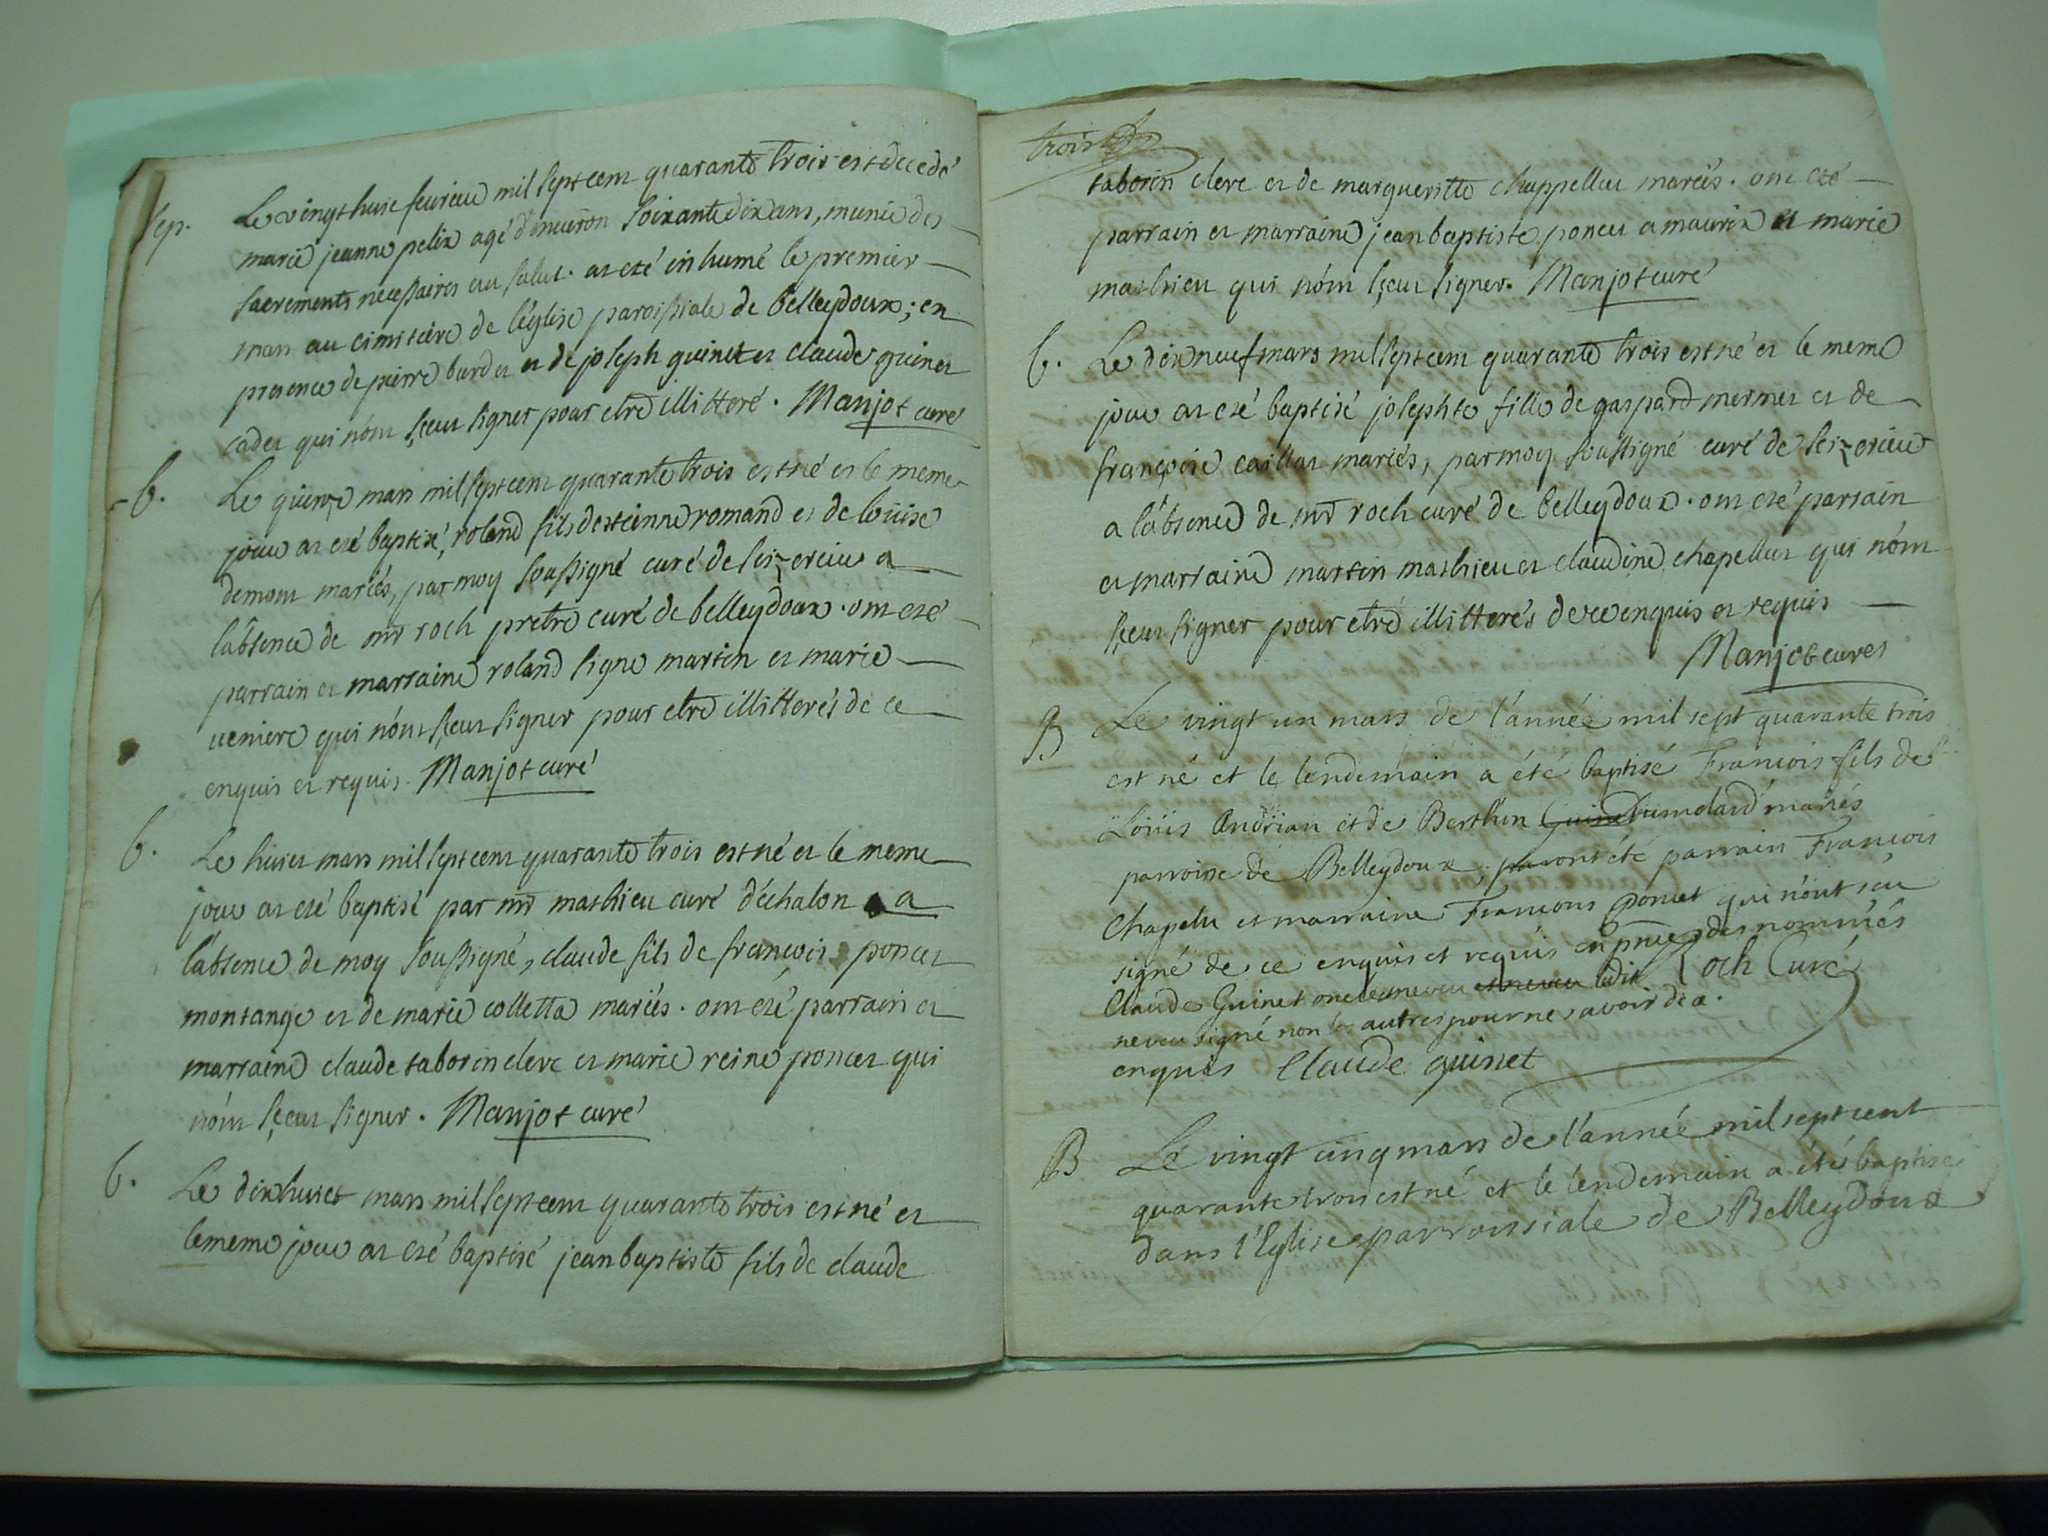 Sep. Le vingt huit feurieu mil sept cent quarante trois est decedé
marie jeanne pelix agé d'enuiron soixante dix ans, munie des
sacrements necessaires au salut. at eté inhumé le premier
mars au cimitiere de l'église paroissiale de belleydoux; en
presence de pierre burdet et de joseph guinet et claude guinet
cadet qui n'ont sceut signer pour etre illitteré. Manjot curé
b. Le quinze mars mil sept cent quarante trois est né et le meme
jour at eté baptisé, roland fils destienne romand et de louise
demont mariés, par moy soussigné curé de a
l'absence de mr roch pretre curé de belleydoux. ont eté
parrain et marraine roland signe martin et marie
qui n'ont sceut signer pour etre illitterés de ce
enquis et requis. Manjot curé
b. Le huiet mars mil sept cent quarante trois est né et le meme
jour at eté baptisé par mr mathieu curé d'échalon a
l'absence de moy soussigné, claude fils de francois poncet
montange et de marie colletta mariés. ont eté parrain et
marraine claude taborin clerc et marie reine poncet qui
n'ont sceut signer. Manjot curé
b. Le dixhuiet mars mil sept cent quarante trois est né et
le meme jour at eté baptisé jean baptiste fils de claude
trois
taborin clerc et de margueritte chappellut mariés. ont eté
parrain et marraine jean baptiste poncet a maurix et marie
mathieu qui n'ont sceut signer. Manjot curé
b. Le dix neuf mars mil sept cent quarante trois est né et le meme
jour at eté baptisé josephte fille de gaspard mermet et de
françoise caillat mariés, par moy soussigné curé de
a l'absence de mr roch curé de belleydoux. ont eté parrain
et marraine martin mathieu et claudine chapellut qui n'ont
sceut signer pour etre illitterés de ce enquis et requis
Manjot curés
B Le vingt un mars de l'année mil sept quarante trois
est né et le lendemain a été baptisé Francois fils de
Loüis Andrian et de Berthin mariés
parroise de Belleydoux. ont été parrain Francois
Chapelu et marraine Francoise poncet qui n'ont sçu
signé de ce enquis et requis en pnce des nommés
Claude Guinet oncle et neveu ledit Roch Curé
neveu signé non les autres pour ne savoir de a.
enquis Claude guinet
B Le vingt cinq mars de l'année mil sept cent
quarante trois est né et le lendemain a été baptisé
dans l'Eglise parroissiale de Belleydoux